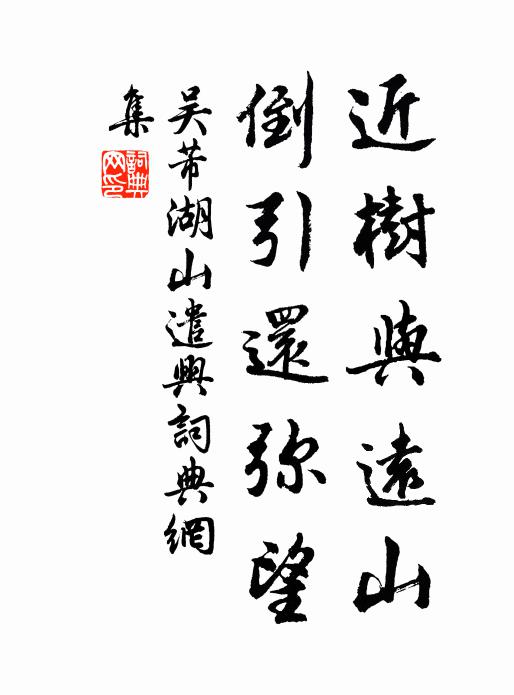 近樹與遠山
倒引還弥望
吳芾湖山遣興詞典網
集
詞典
网印